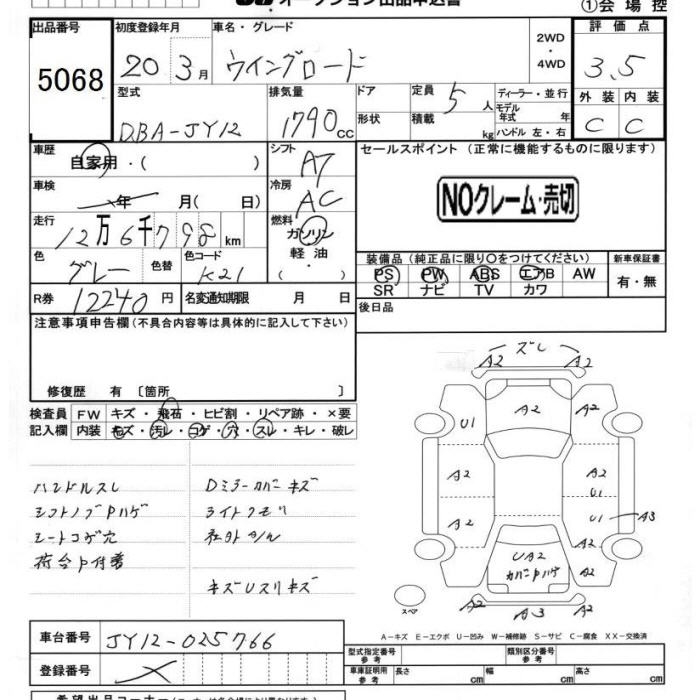 オークション出品申込書
①会場控
出品番号 初度登録年月 車名・グレード 2WD・4WD 評価点
5068 20 3月 ウイングロード 3.5
型式 排気量 ドア 定員 5人 ディーラー・並行 外装 内装
DBA-JY12 1790cc 形状 積載 kg モデル年式 年 ハンドル 左・右 C C
車歴 自家用・( ) シフト AT セールスポイント (正常に機能するものに限ります)
車検 年 月( 日) 冷房 AC NOクレーム・売切
走行 12万6千798km 燃料 ガソリン 軽油・( )
色 グレー 色替 色コード K21
装備品 (純正品に限り○をつけてください) 新車保証書
PS PW ABS エアB AW 有・無
SR ナビ TV カワ
R券 12240円 名変通知期限 月 日 後日品
注意事項申告欄(不具合内容等は具体的に記入して下さい)
修復歴 有〔箇所 〕
検査員 FW キズ・飛石・ヒビ割・リペア跡・×要
記入欄 内装 キズ・汚レ・コゲ・穴・スレ・キレ・破レ
ハンドルスレ Dミラーカバーキズ
シフトノブPハゲ ライトクモリ
シートコゲ穴 社外
荷台P付着
キズUスリキズ
ズレ
A2 A2
U1 A2 A2
A2 A2
U1
A2 U1 A3
A2 UA2 A2
カバーPハゲ
スペア A2 A3 A2
A-キズ E-エクボ U-凹み W-補修跡 S-サビ C-腐食 XX-交換済
車台番号 JY12-025766
型式指定番号 参考 類別区分番号 参考
登録番号
車庫証明用 参考 長さ cm 幅 cm 高さ cm